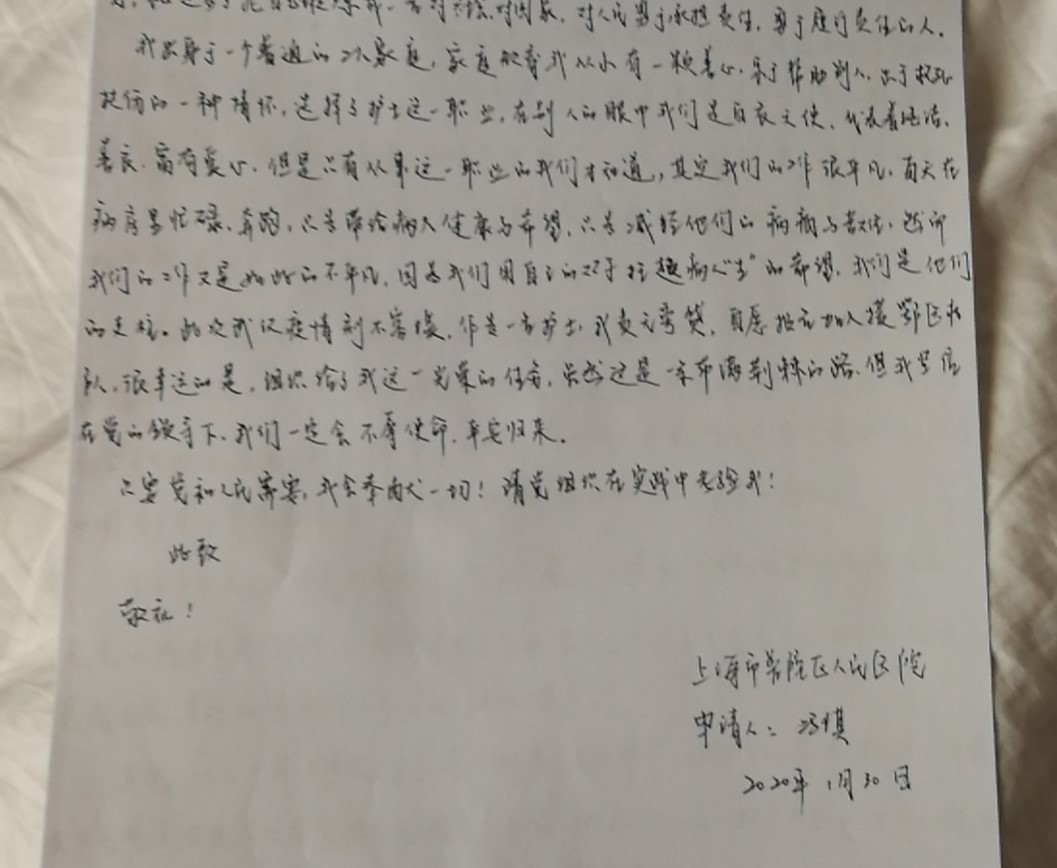 对人民勇于承担责任,勇于履行责任的人。
我出身于一个普通的工人家庭,家庭教育我从小有一颗善心,乐于帮助别人,出于救死
扶伤的一种情怀,选择了护士这一职业,在别人的眼中我们是白衣天使,代表着纯洁、
善良、富有爱心,但是只有从事这一职业的我们才知道,其实我们的工作很平凡,每天在
病房里忙碌、奔跑,只为带给病人健康与希望,只为减轻他们的病痛与
我们的工作又是如此的不平凡,因为我们用自己的双手托起病人“生”的希望,我们是他们
的支柱。此次武汉疫情刻不容缓,作为一名护士,我责无旁贷,自愿报名加入援鄂医疗
队,很幸运的是,组织给了我这一光荣的任务,虽然这是一条布满荆棘的路,但我坚信
在党的领导下,我们一定会不辱使命,平安归来。
只要党和人民需要,我会奉献一切!请党组织在实践中考验我!
此致
敬礼!
上海市普陀区人民医院
申请人:冯琪
2020年1月30日